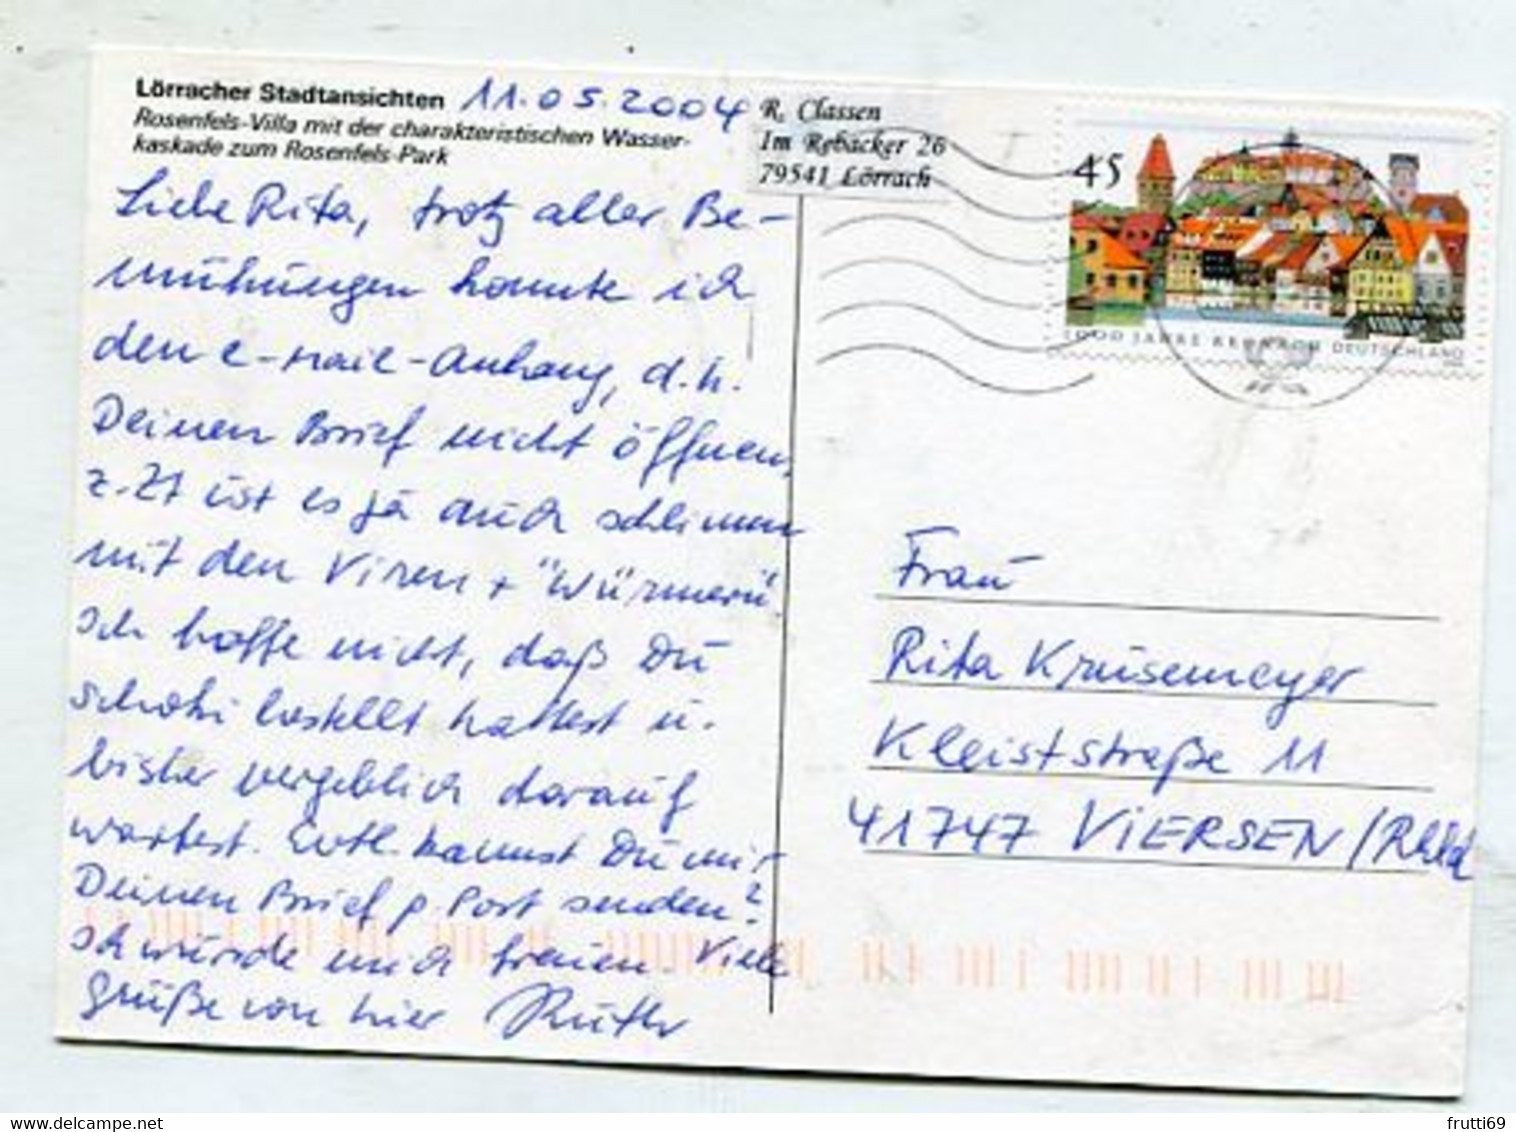 Lörracher Stadtansichten 11.05.2004
Rosenfels-Villa mit der charakteristischen Wasser-
kaskade zum Rosenfels-Park
Liebe Rita, trotz aller Be-
mühungen konnte ich
den e-mail-Anhang, d.h.
Deinen Brief nicht öffnen,
z.Zt ist es ja auch schlimm
mit den Viren + "Würmern".
Ich hoffe nicht, daß Du
bestellt hattest u.
bisher vergeblich darauf
wartest. Evtl. kannst Du mir
Deinen Brief p. Post senden?
Ich würde mich freuen. Viele
Grüße von hier Ruth
R. Classen
Im Rebacker 26
79541 Lörrach
45
1000 JAHRE KRONACH DEUTSCHLAND
Frau
Rita Krüsemeyer
Kleiststraße 11
41747 VIERSEN/Rhld
delcampe.net
frutti69